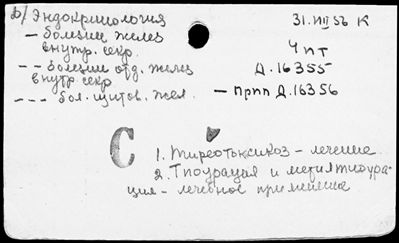 б/ Эндокринология
31.VIII 56 К
– болезни желез
внутр. секр.
Чпт
– – болезни отд. желез
Д.16355
внутр. секр
– – – бол. щитов. жел.
– прпп Д.16356
С
1. Тиреотоксикоз – лечение
2. Тиоурацил и метилтиоура-
цил – лечебное применение